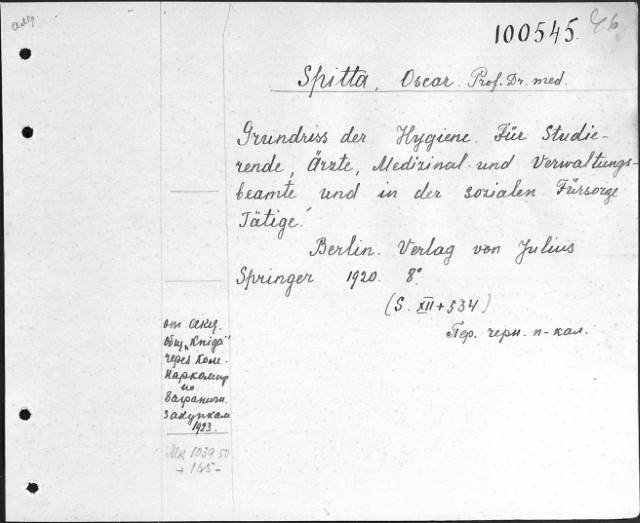 100545.
46
Spitta, Oscar. Prof. Dr. med.
Grundriss der Hygiene. Für Studie-
rende, Ärzte, Medizinal- und Verwaltungs-
beamte und in der sozialen Fürsorge
Tätige.
Berlin. Verlag von Julius
Springer 1920. 8°
(S. XII + 534)
Пер. черн. п-кал.
от Акц.
общ. „Kniga"
через Ком.
Наркомпр
по
Заграничн.
Закупкам
1923.
Mk 103950
+ 145 -